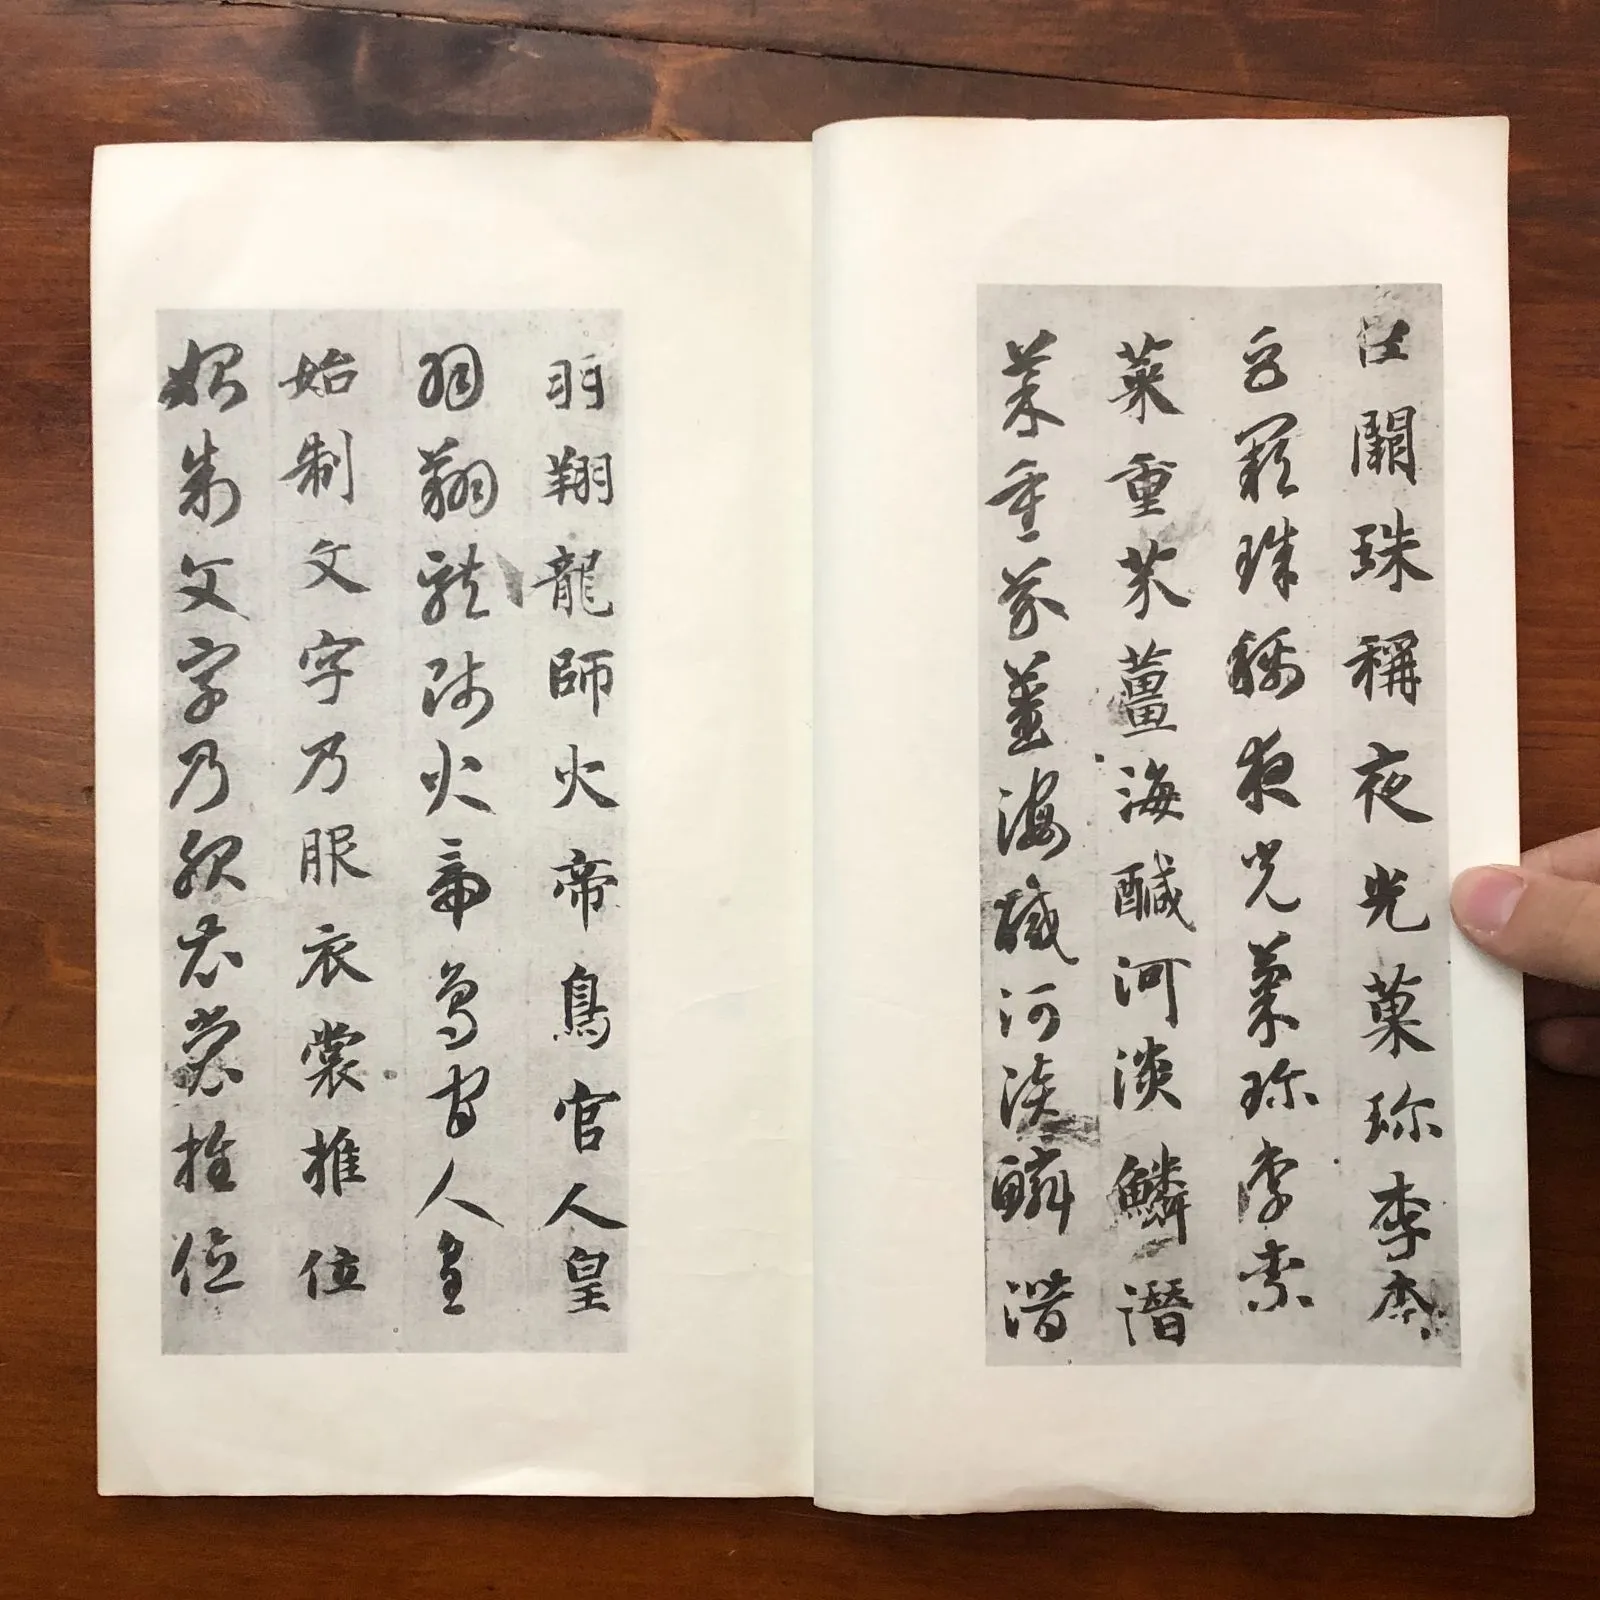 巨闕珠稱夜光菓珎李柰
巨闕珠稱夜光菓珎李柰
菜重芥薑海醎河淡鱗潛
菜重芥薑海醎河淡鱗潛
羽翔龍師火帝鳥官人皇
羽翔龍師火帝鳥官人皇
始制文字乃服衣裳推位
始制文字乃服衣裳推位